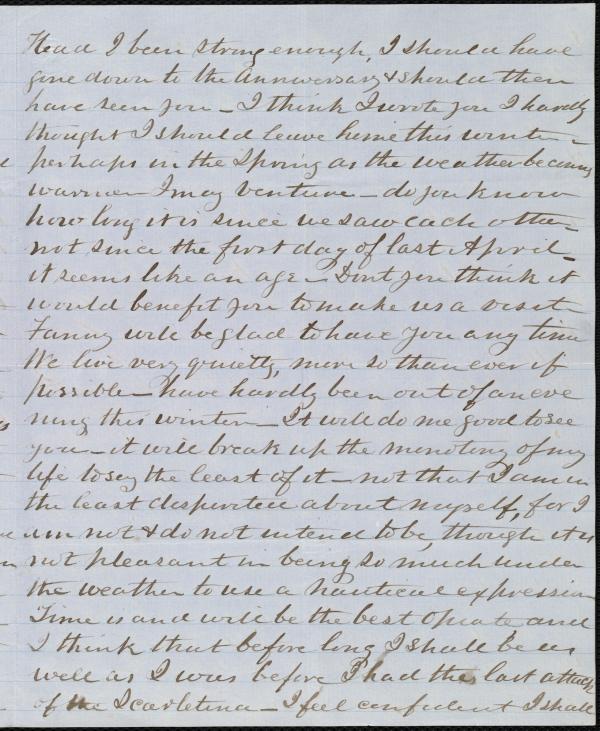 Had I been strong enough, I should have
gone down to the Anniversary & should then
have seen you – I think I wrote you I hardly
thought I should leave home this winter –
perhaps in the Spring as the weather becomes
warmer I may venture – do you know
how long it is since we saw each other
not since the first day of last April –
it seems like an age – Dont you think it
would benefit you to make us a visit
Fanny will be glad to have you any time
We live very quietly, more so than ever if
possible – have hardly been out of an eve
ning this winter – It will do me good to see
you – it will break up the monotony of my
life to say the least of it – not that I am in
the least dispirited about myself, for I
am not & do not intend to be, though it is
not pleasant in being so much under
the weather to use a nautical expression
Time is and will be the best opiate and
I think that before long I shall be as
well as I was before I had the last attack
of the Scarletina – I feel confident I shall